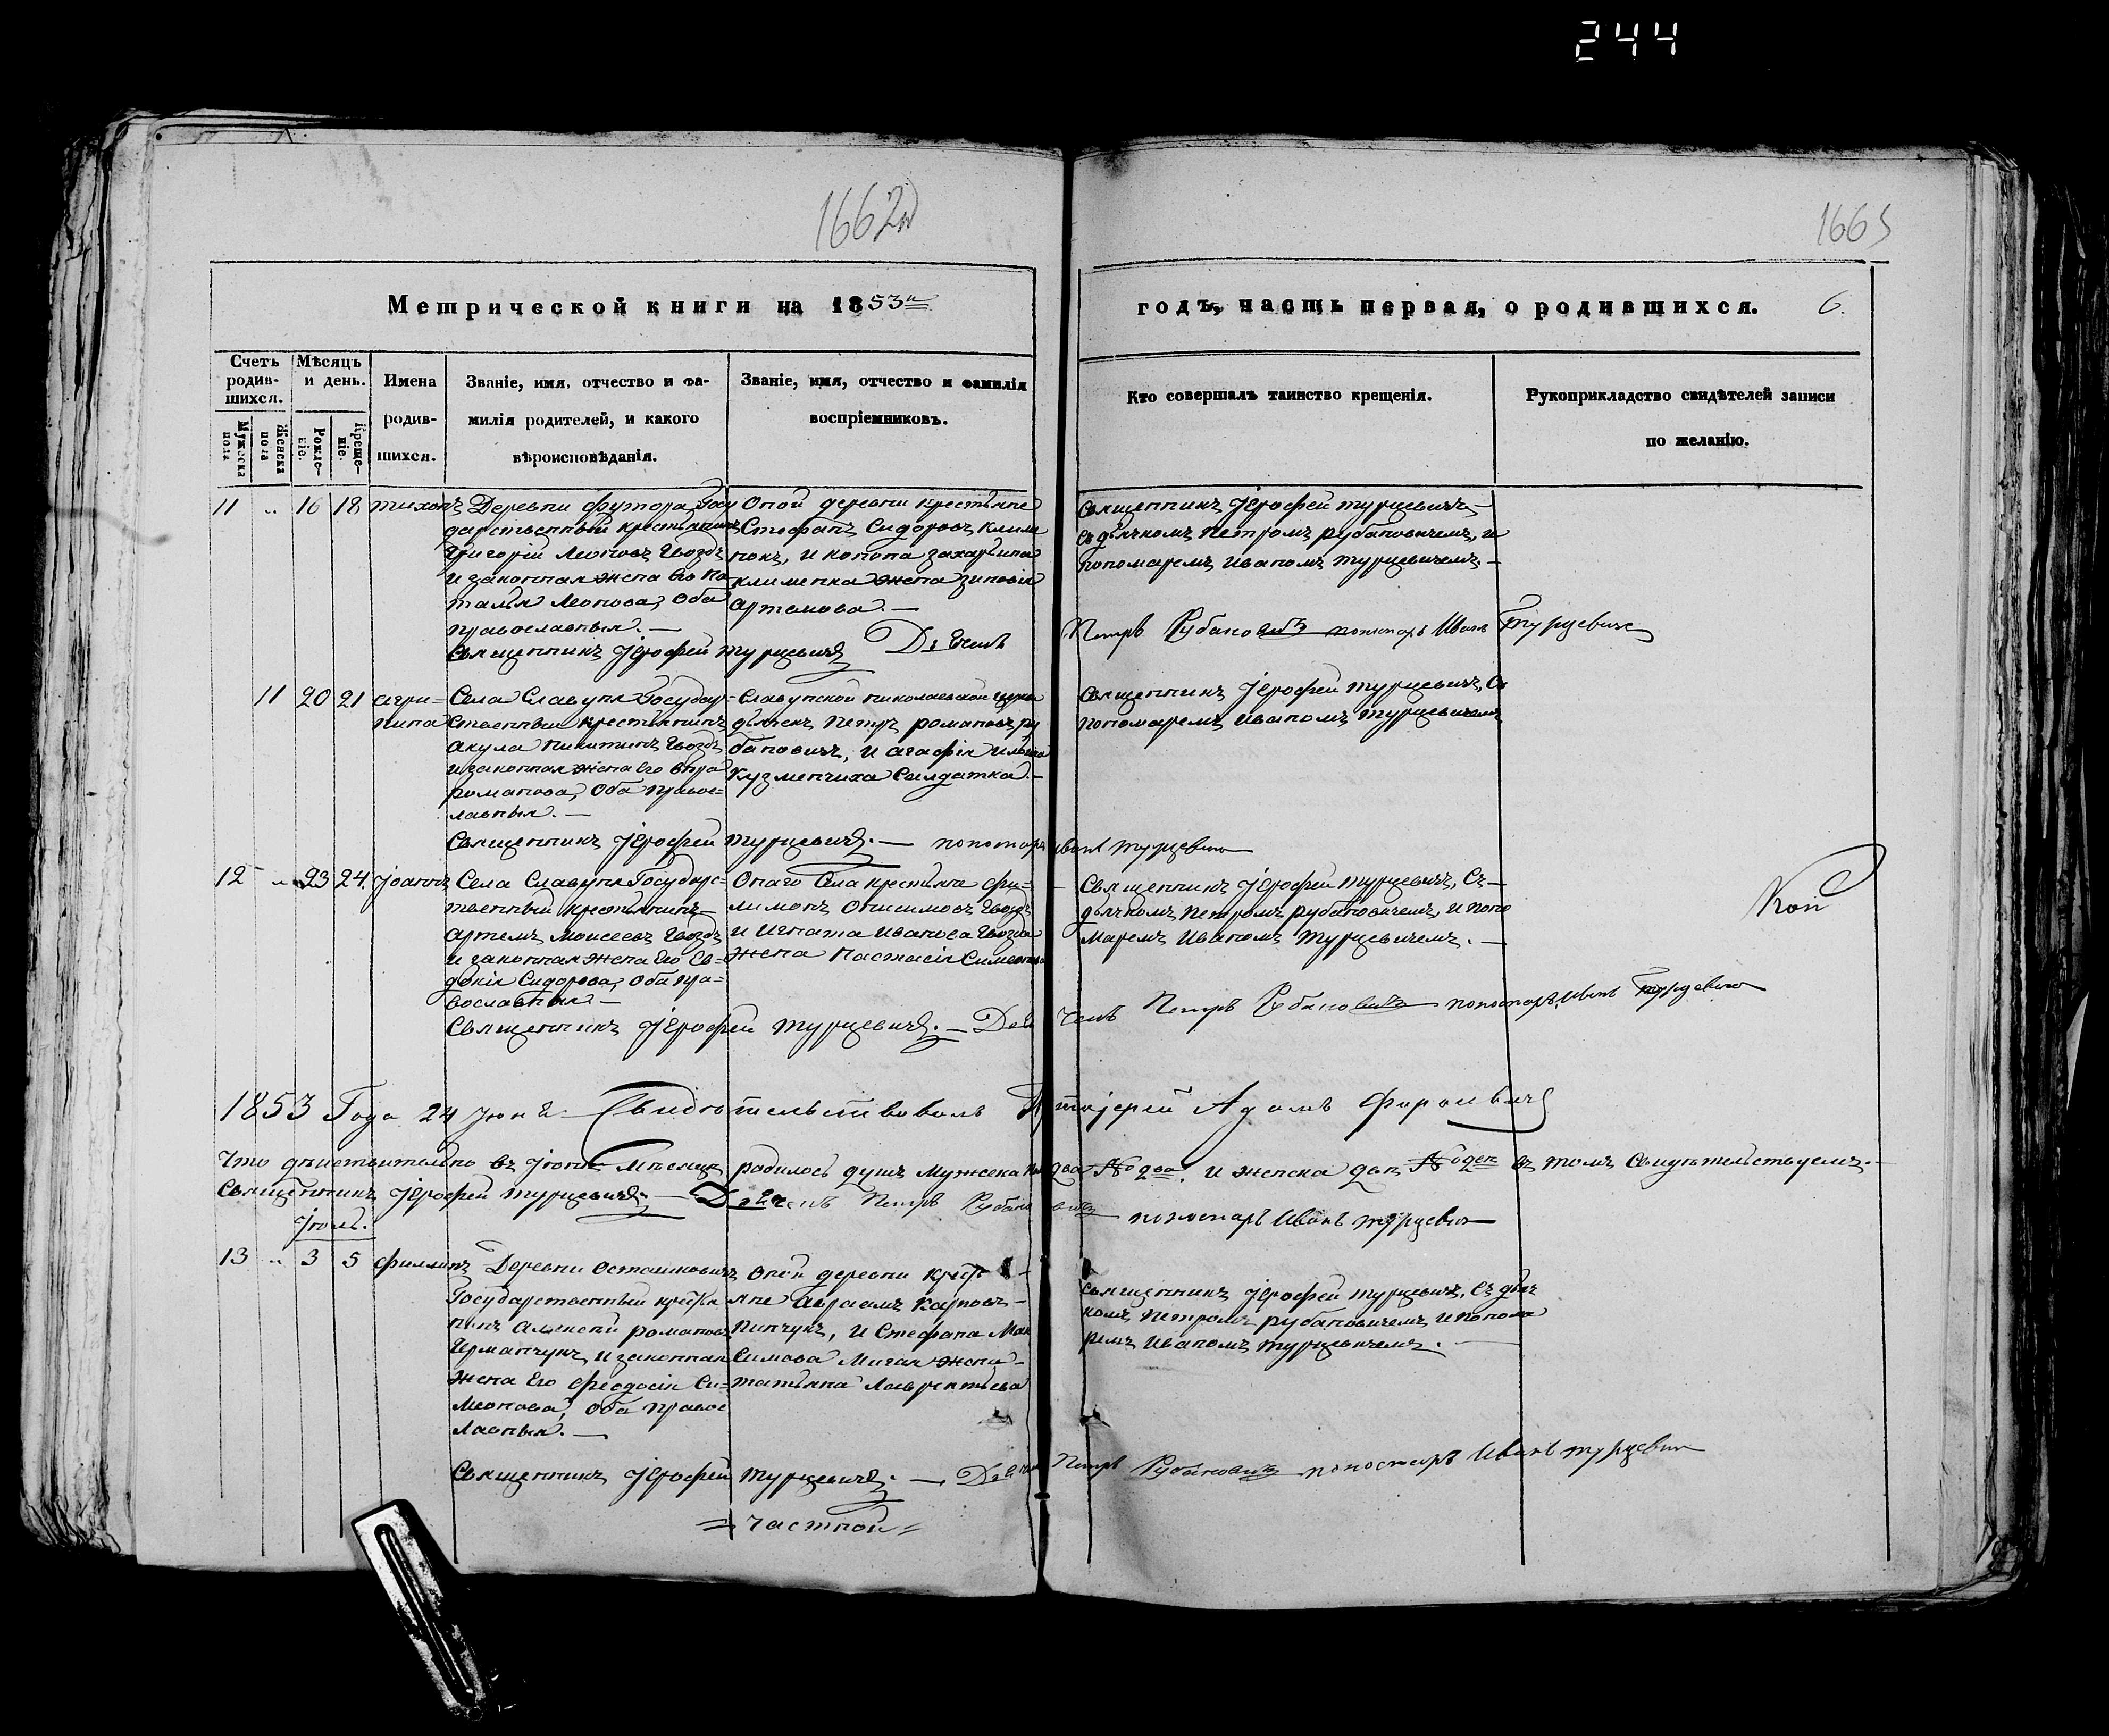 244
1662
1663
Метрической книги на 1853й
годъ, часть первая, о родившихся. 6.
Счетъ родив-шихся.
Мѣсяцъ и день.
Имена родив-шихся.
Званіе, имя, отчество и фа-милія родителей, и какого вѣроисповѣданія.
Званіе, имя, отчество и фамилія воспріемниковъ.
Кто совершалъ таинство крещенія.
Рукоприкладство свидѣтелей записи по желанію.
Мужеска пола
Женска пола
Рожде-ніе.
Креще-ніе.
11 „ 16 18 Тихонъ
Деревни Футора Госу
дарственный крестьянинъ
Григорій Леоновъ Гвоздь
и законная жена его На
талья Леонова, оба
православныя. —
Оной деревни крестьяне
Стефанъ Сидоровъ Климе
нокъ, и Конона Захарьина
Клименка жена Зиновія
Артемова. —
Священникъ Іерофей Турцевичъ —
съ дьячкомъ Петромъ Рубановичемъ, и
пономаремъ Иваномъ Турцевичемъ. —
Священникъ Іерофей Турцевичъ Дьячекъ
Петръ Рубановичъ пономарь Иванъ Турцевичъ
11 20 21 Агри=
пина
Села Славуня Государ=
ственный крестьянинъ
Акула Никитинъ Гвоздь
и законная жена его
Романова, оба правос=
лавныя. —
Славунской николаевской церкви
дьячекъ Петръ Романовъ Ру
бановичъ, и Агафія Ильина
Кузменчиха Салдатка. —
Священникъ Іерофей Турцевичъ, съ
пономаремъ Иваномъ Турцевичемъ
Священникъ Іерофей Турцевичъ. — пономарь Иванъ Турцевичъ
12 „ 23 24. Іоаннъ
Села Славуня Государс=
твенный крестьянинъ
Артемъ Моисеевъ Гвоздь
и законная жена его Ев=
докія Сидорова, оба пра=
вославныя —
Онаго села крестьяне Фи=
лимонъ Онисимовъ Гвоздь
и Игната Иванова Гвоздя
жена Настасія Симеонова
Священникъ Іерофей Турцевичъ, съ —
дьячкомъ Петромъ Рубановичемъ, и поно
маремъ Иваномъ Турцевичемъ. —
Священникъ Іерофей Турцевичъ. — Дьячекъ Петръ Рубановичъ пономарь Иванъ Турцевичъ
1853 Года 24 Свидѣтельствовалъ Адамъ
Что дѣйствительно въ Іюнѣ Мѣсяцѣ родилось душъ Мужеска два №два. и женска №одна въ томъ свидѣтельствуемъ. —
Священникъ Іерофей Турцевичъ — Дьячекъ Петръ Рубановичъ пономарь Иванъ Турцевичъ
Іюль.
13 „ 3 5 Филипъ
Деревни Осташковичъ
Государственный крестья
нинъ Алексѣй Романовъ
Ирманчукъ, и законная
жена его Феодосія Си=
меонова, оба правос
лавныя. —
Оной деревни крестья
яне Авраамъ Карповъ —
Пинчукъ, и Стефана Мак
симова Мигая жена —
Татьяна Лаврентьева
Священникъ Іерофей Турцевичъ, съ дьяч
комъ Петромъ Рубановичемъ и понома
ремъ Иваномъ Турцевичемъ. —
Священникъ Іерофей Турцевичъ. — Дьячекъ Петръ Рубановичъ пономарь Иванъ Турцевичъ